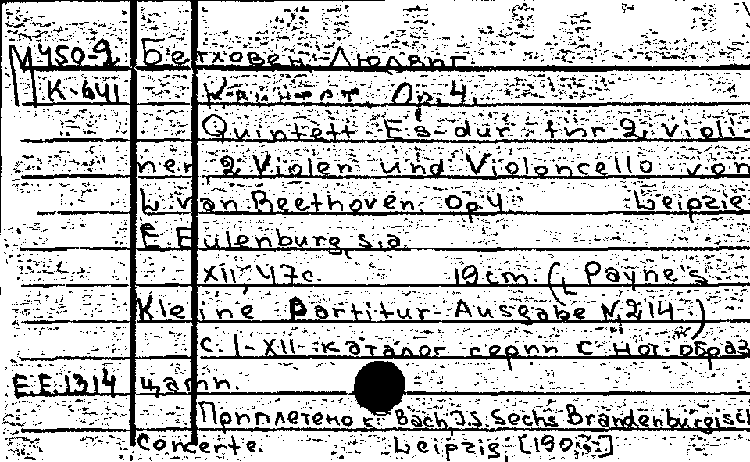 М450-2 Бетховен Людвиг.
К-641 Квинтет. Ор. 4.
Quintett Es-dur für 2 Violi-
nen, 2 Violen und Violoncello von
L. van Beethoven. Op 4. Leipzig
E. Eulenburg, s.a.
XII, 47c. 19cm. (Payne's
Kleine Partitur-Ausgabe N 214.)
С. I-XII-каталог серии с нот. образ
Е.Е.1314 цами.
Приплетено к: Bach J.S. Sechs Brandenburgisch
Concerte. Leipzig,